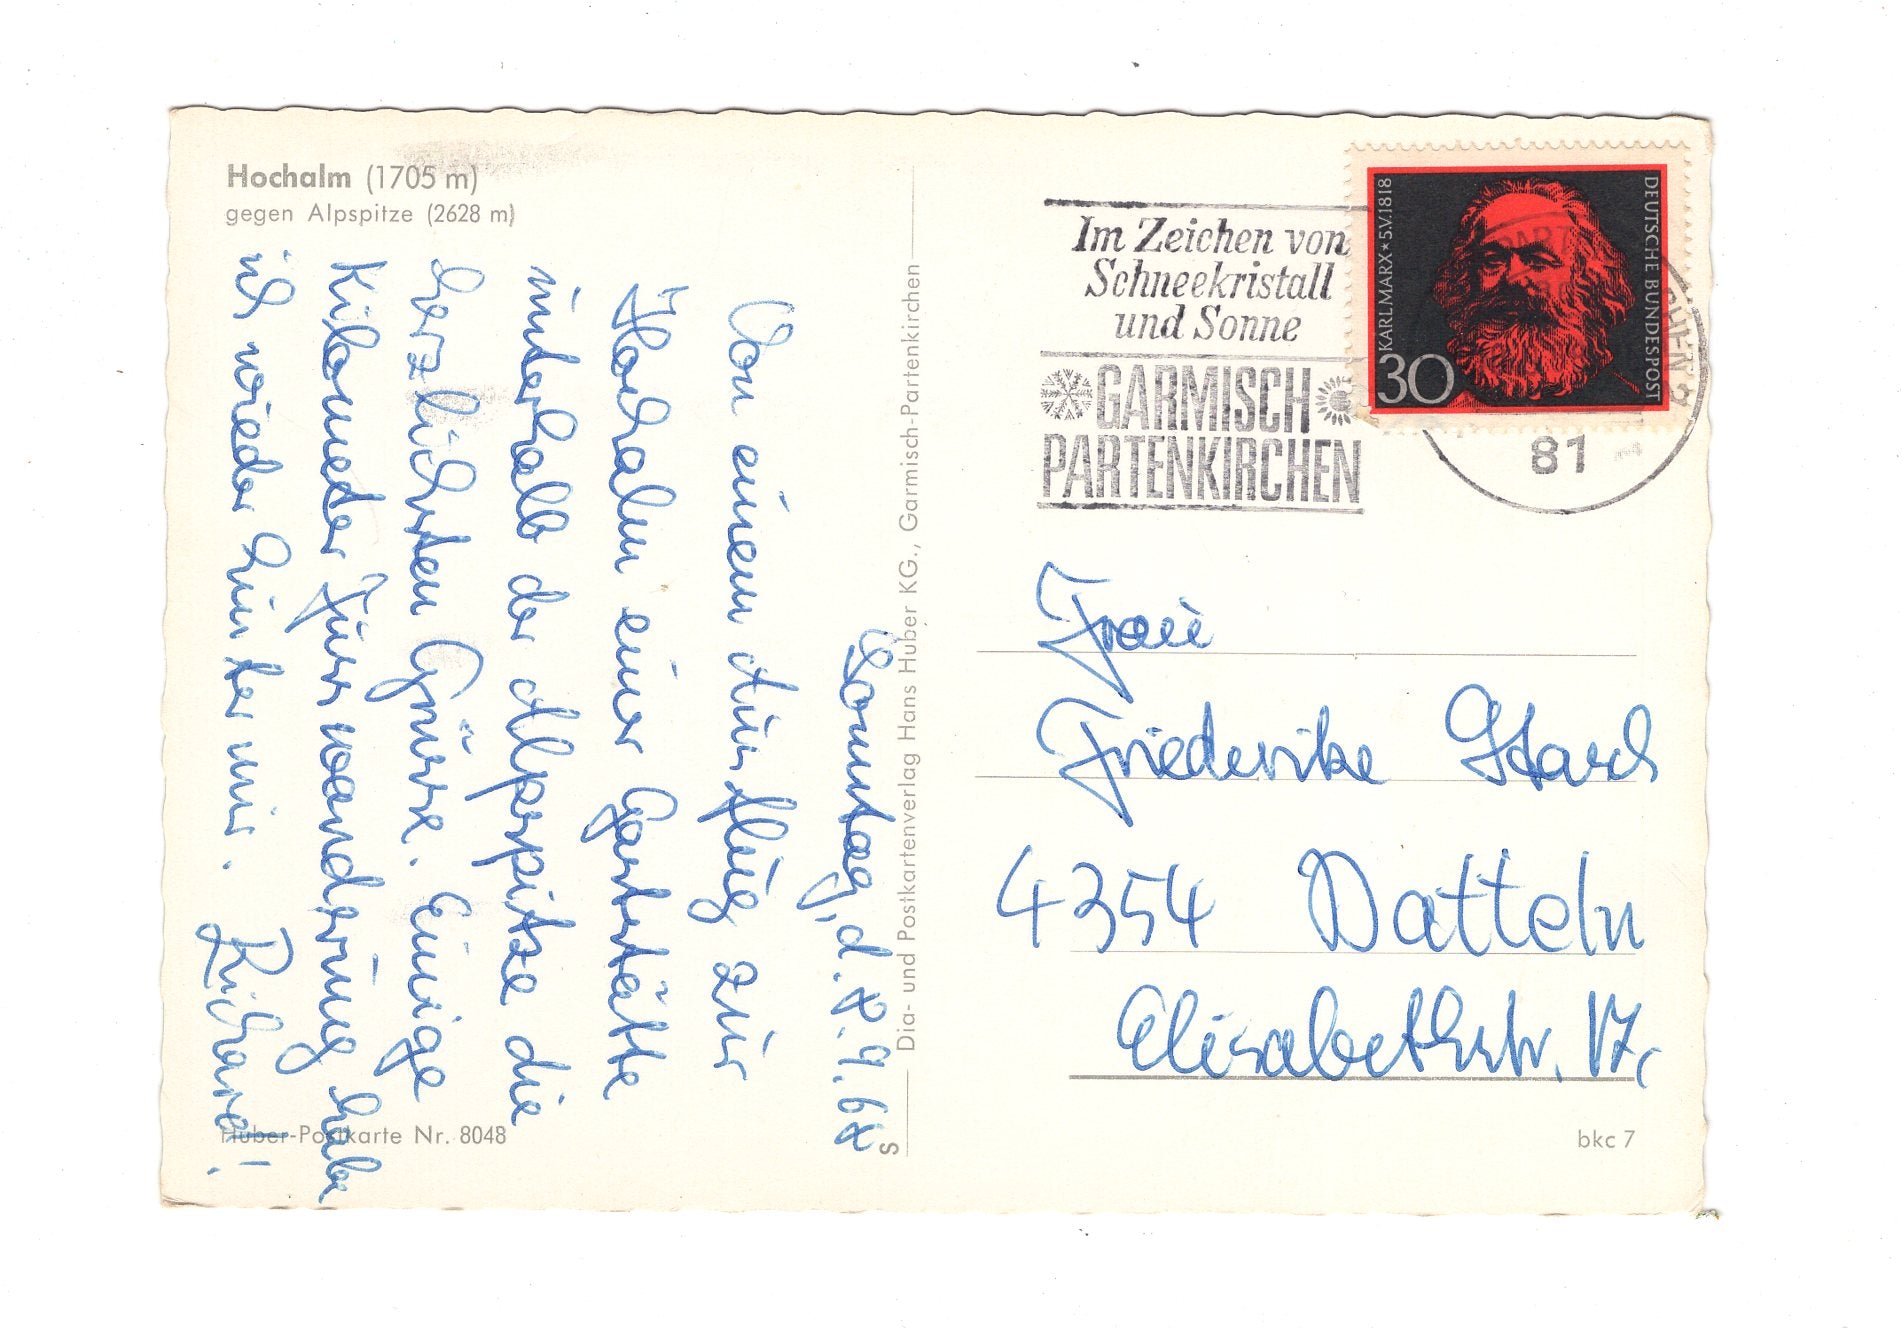 Hochalm (1705 m)
gegen Alpspitze (2628 m)
Sonntag, d. 8. 9. 68
Von einem Ausflug zur
Hochalm einer Gaststätte
unterhalb der Alpspitze die
herzlichsten Grüsse. Einige
Kilometer Fusswanderung habe
ich wieder hinter mir. Richard!
Huber-Postkarte Nr. 8048
Dia- und Postkartenverlag Hans Huber KG., Garmisch-Partenkirchen
S
Im Zeichen von
Schneekristall
und Sonne
GARMISCH
PARTENKIRCHEN
KARL MARX * 5.V.1818
DEUTSCHE BUNDESPOST
30
81
Frau
Friederike
4354 Datteln
Elisabethstr. 17,
bkc 7